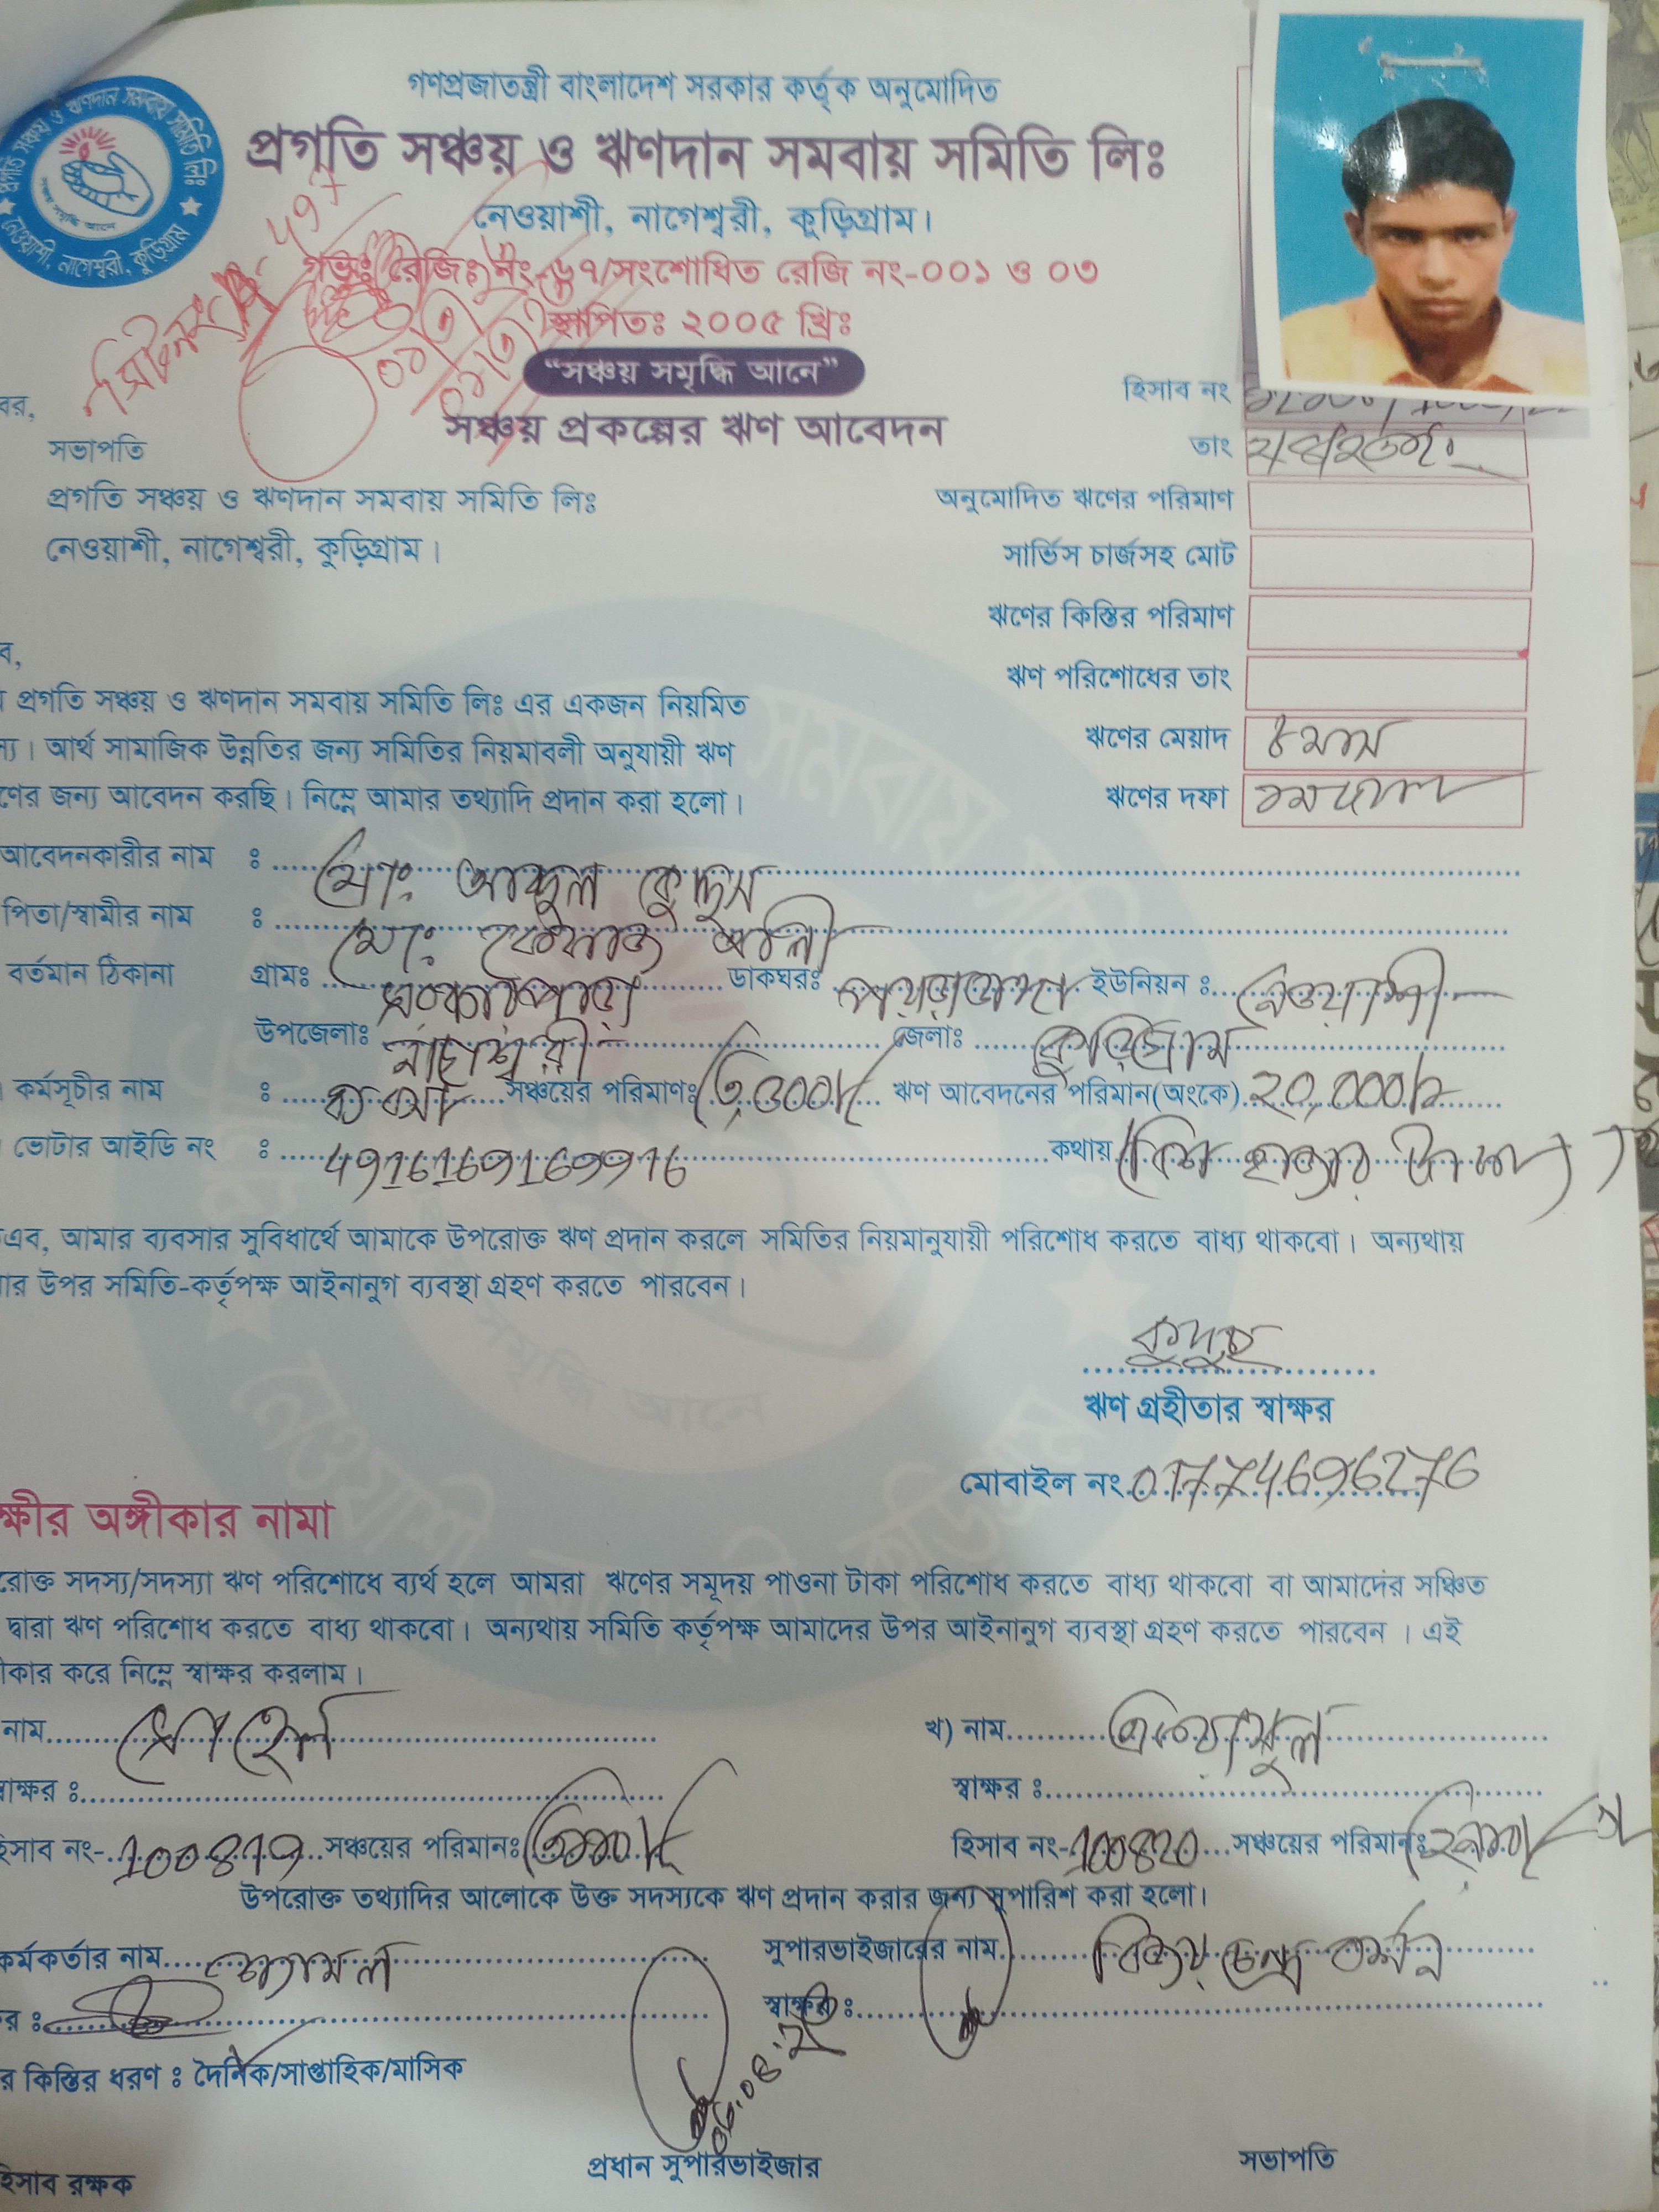 গণপ্রজাতন্ত্রী বাংলাদেশ সরকার কর্তৃক অনুমোদিত
প্রগতি সঞ্চয় ও ঋণদান সমবায় সমিতি লিঃ
নেওয়াশী, নাগেশ্বরী, কুড়িগ্রাম।
গভঃ রেজিঃ নং-৬৭/সংশোধিত রেজি নং-০০১ ও ০৩
স্থাপিতঃ ২০০৫ খ্রিঃ
“সঞ্চয় সমৃদ্ধি আনে”
সঞ্চয় প্রকল্পের ঋণ আবেদন
হিসাব নং
বর,
সভাপতি
তাং
প্রগতি সঞ্চয় ও ঋণদান সমবায় সমিতি লিঃ
অনুমোদিত ঋণের পরিমাণ
নেওয়াশী, নাগেশ্বরী, কুড়িগ্রাম।
সার্ভিস চার্জসহ মোট
ঋণের কিস্তির পরিমাণ
ব,
ঋণ পরিশোধের তাং
প্রগতি সঞ্চয় ও ঋণদান সমবায় সমিতি লিঃ এর একজন নিয়মিত
স্য। আর্থ সামাজিক উন্নতির জন্য সমিতির নিয়মাবলী অনুযায়ী ঋণ
ঋণের মেয়াদ মাস
ণের জন্য আবেদন করছি। নিম্নে আমার তথ্যাদি প্রদান করা হলো।
ঋণের দফা
আবেদনকারীর নাম : মোঃ আব্দুল কুদ্দুস
পিতা/স্বামীর নাম : মোঃ আলী
বর্তমান ঠিকানা গ্রামঃ ডাকঘরঃ পয়রাডাঙ্গা ইউনিয়ন : নেওয়াশী
উপজেলাঃ নাগেশ্বরী জেলাঃ কুড়িগ্রাম
কর্মসূচীর নাম : সঞ্চয়ের পরিমাণঃ ঋণ আবেদনের পরিমান(অংকে) ২০,০০০/=
ভোটার আইডি নং : 4916169169916 কথায় (বিশ হাজার টাকা)
এব, আমার ব্যবসার সুবিধার্থে আমাকে উপরোক্ত ঋণ প্রদান করলে সমিতির নিয়মানুযায়ী পরিশোধ করতে বাধ্য থাকবো। অন্যথায়
ার উপর সমিতি-কর্তৃপক্ষ আইনানুগ ব্যবস্থা গ্রহণ করতে পারবেন।
কুদ্দুছ
ঋণ গ্রহীতার স্বাক্ষর
মোবাইল নং 01774696276
ক্ষীর অঙ্গীকার নামা
রোক্ত সদস্য/সদস্যা ঋণ পরিশোধে ব্যর্থ হলে আমরা ঋণের সমূদয় পাওনা টাকা পরিশোধ করতে বাধ্য থাকবো বা আমাদের সঞ্চিত
দ্বারা ঋণ পরিশোধ করতে বাধ্য থাকবো। অন্যথায় সমিতি কর্তৃপক্ষ আমাদের উপর আইনানুগ ব্যবস্থা গ্রহণ করতে পারবেন । এই
ীকার করে নিম্নে স্বাক্ষর করলাম।
নাম সোহেল খ) নাম
্বাক্ষর : স্বাক্ষর :
হিসাব নং- 100819 সঞ্চয়ের পরিমানঃ হিসাব নং- 100820 সঞ্চয়ের পরিমানঃ
উপরোক্ত তথ্যাদির আলোকে উক্ত সদস্যকে ঋণ প্রদান করার জন্য সুপারিশ করা হলো।
কর্মকর্তার নাম সুপারভাইজারের নাম বিজয় চন্দ্র বর্মন
র : স্বাক্ষর :
র কিস্তির ধরণ : দৈনিক/সাপ্তাহিক/মাসিক
হিসাব রক্ষক প্রধান সুপারভাইজার সভাপতি